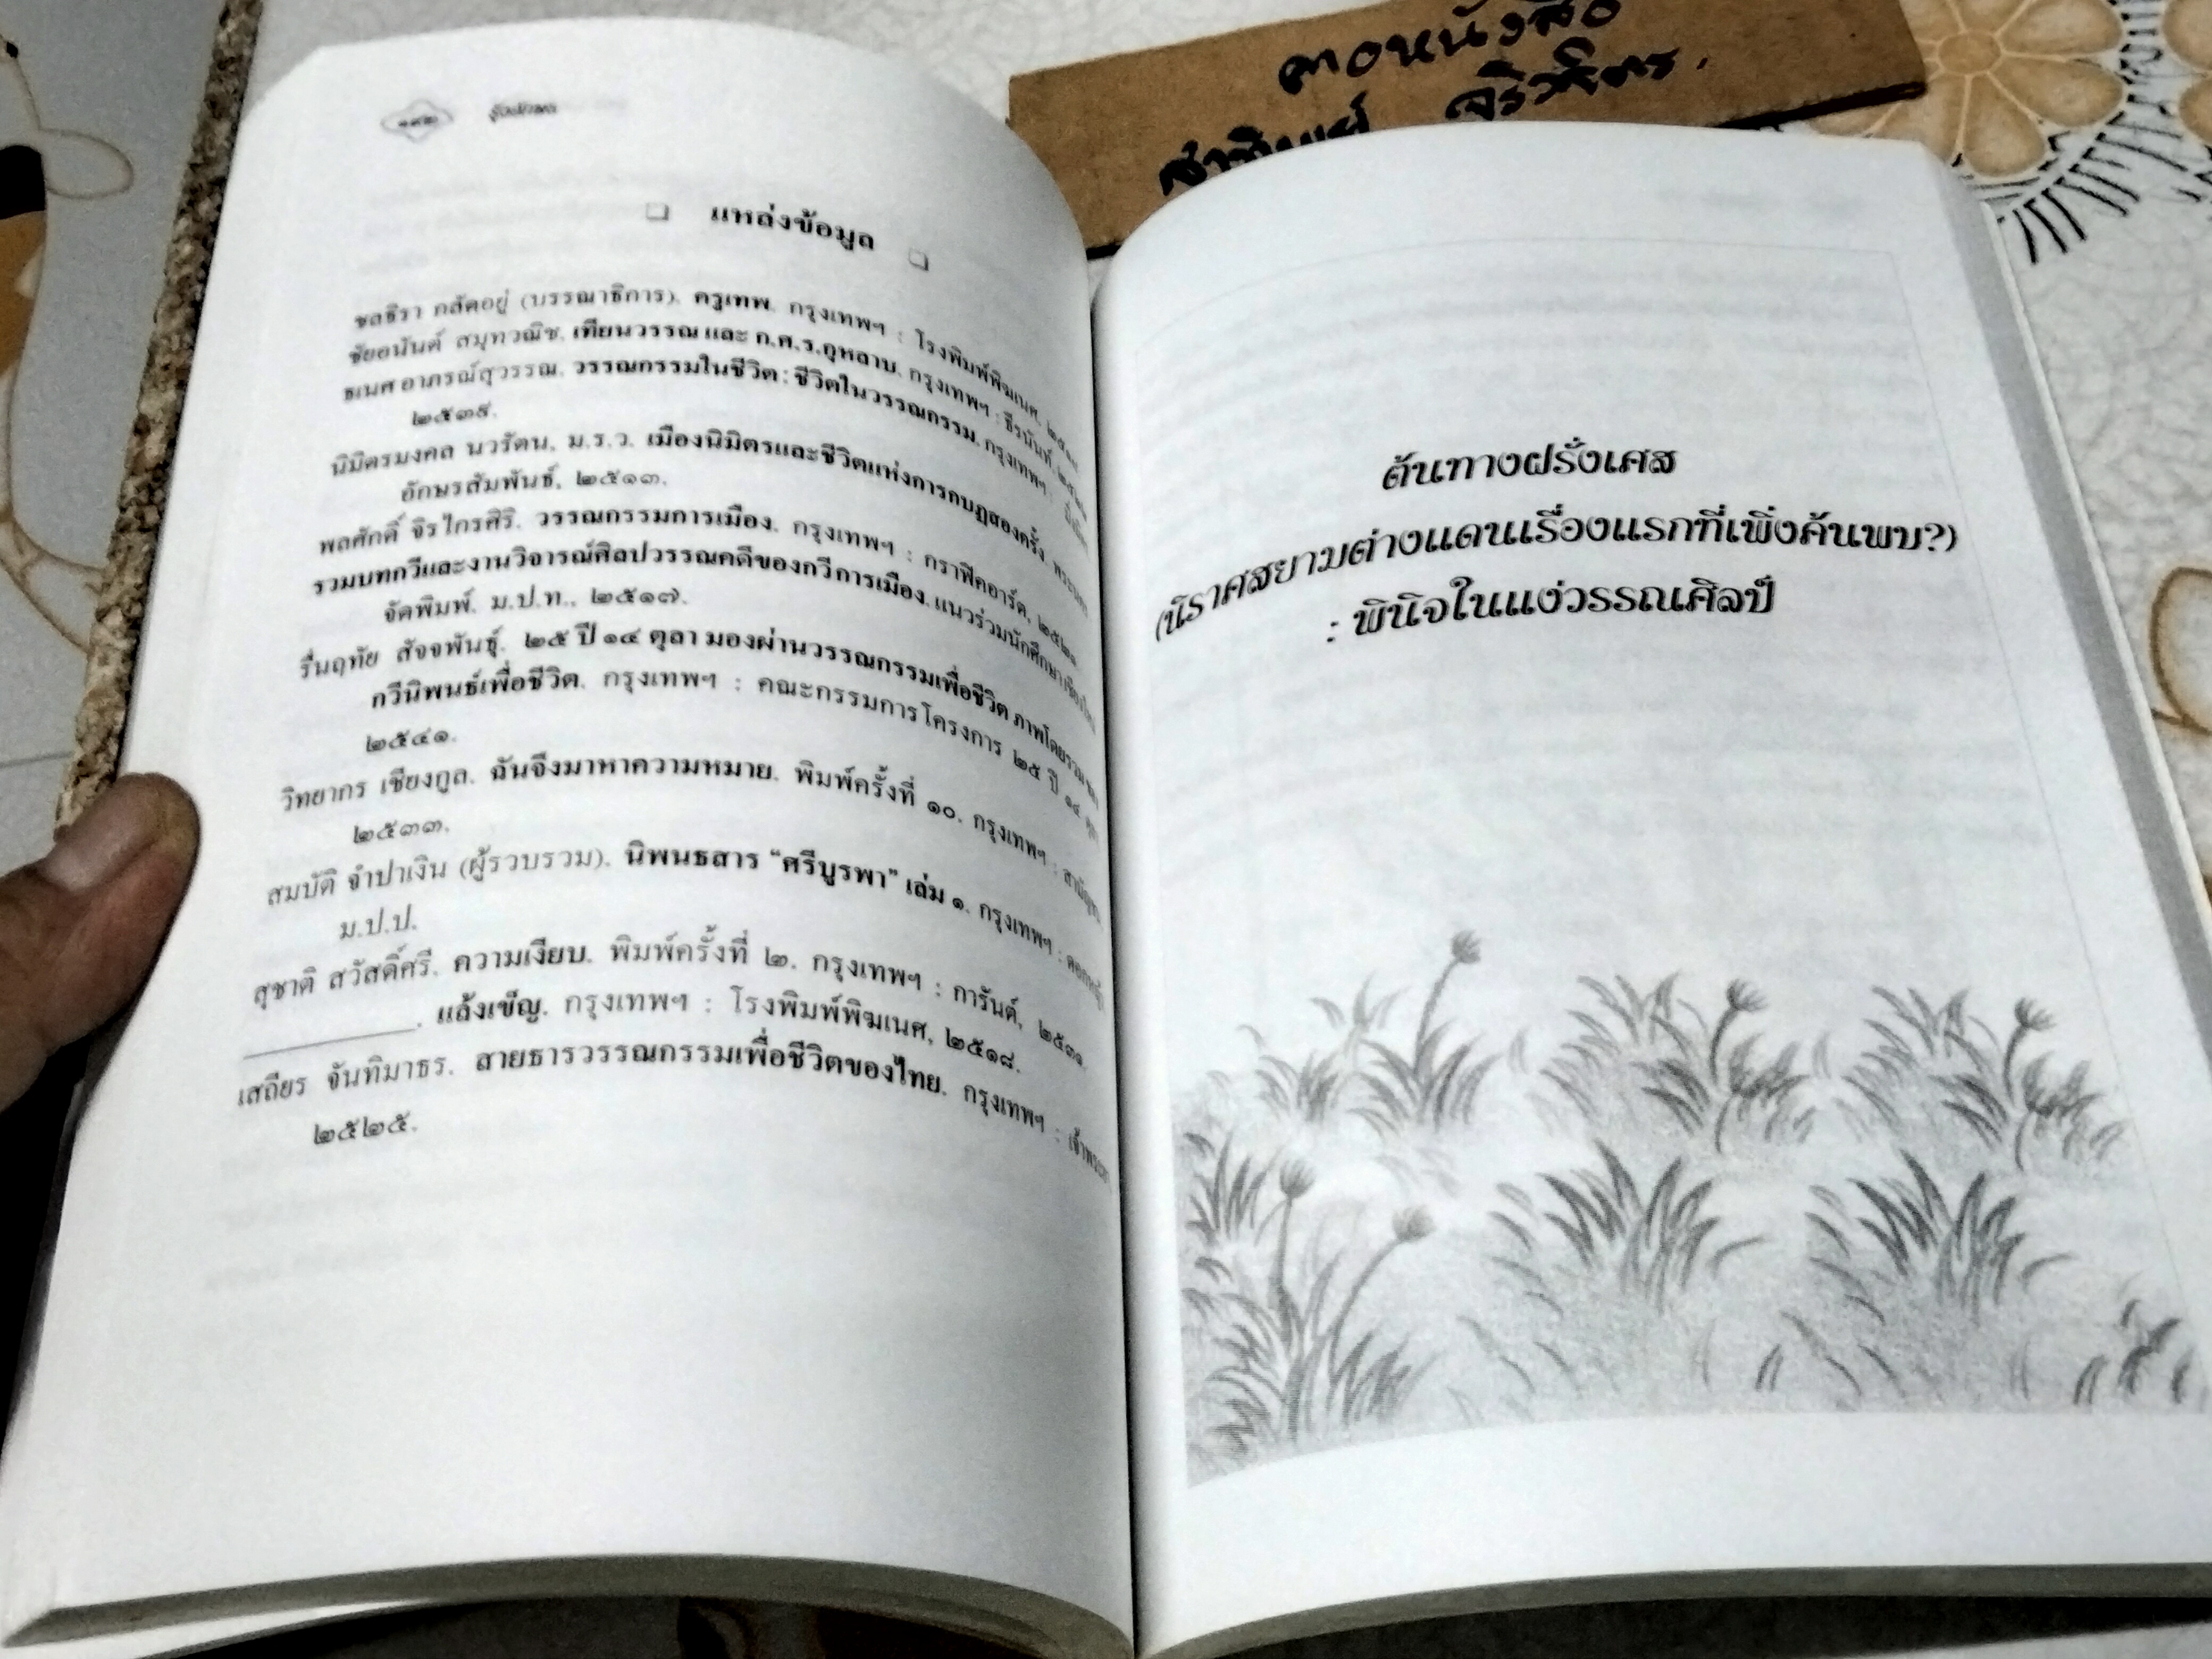 คอหนังสือ
แหล่งข้อมูล
ชลธิรา กลัดอยู่ (บรรณาธิการ). ครูเทพ. กรุงเทพฯ : โรงพิมพ์พิฆเนศ,
ชัยอนันต์ สมุทวณิช. เทียนวรรณ และ ก.ศ.ร.กุหลาบ. กรุงเทพฯ : ธีรนันท์,
ธเนศ อาภรณ์สุวรรณ. วรรณกรรมในชีวิต : ชีวิตในวรรณกรรม. กรุงเทพฯ :
๒๕๓๕.
นิมิตรมงคล นวรัตน, ม.ร.ว. เมืองนิมิตรและชีวิตแห่งการกบฏสองครั้ง.
อักษรสัมพันธ์, ๒๕๑๓.
พลศักดิ์ จิรไกรศิริ. วรรณกรรมการเมือง. กรุงเทพฯ : กราฟิคอาร์ต,
รวมบทกวีและงานวิจารณ์ศิลปวรรณคดีของกวีการเมือง. แนวร่วมนักศึกษาเชียงใหม่
จัดพิมพ์. ม.ป.ท., ๒๕๑๗.
รื่นฤทัย สัจจพันธุ์. ๒๕ ปี ๑๔ ตุลา มองผ่านวรรณกรรมเพื่อชีวิต ภาพโดยรวม
กวีนิพนธ์เพื่อชีวิต. กรุงเทพฯ : คณะกรรมการโครงการ ๒๕ ปี ๑๔ ตุลา
๒๕๔๑.
วิทยากร เชียงกูล. ฉันจึงมาหาความหมาย. พิมพ์ครั้งที่ ๑๐. กรุงเทพฯ : สามัญชน
๒๕๓๓.
สมบัติ จำปาเงิน (ผู้รวบรวม). นิพนธสาร “ศรีบูรพา” เล่ม ๑. กรุงเทพฯ : ดอกหญ้า
ม.ป.ป.
สุชาติ สวัสดิ์ศรี. ความเงียบ. พิมพ์ครั้งที่ ๒. กรุงเทพฯ : การันต์, ๒๕๓๑.
________. แล้งเข็ญ. กรุงเทพฯ : โรงพิมพ์พิฆเนศ, ๒๕๑๘.
เสถียร จันทิมาธร. สายธารวรรณกรรมเพื่อชีวิตของไทย. กรุงเทพฯ :
๒๕๒๕.
ต้นทางฝรั่งเศส
(นิราศสยามต่างแดนเรื่องแรกที่เพิ่งค้นพบ?)
: พินิจในแง่วรรณศิลป์